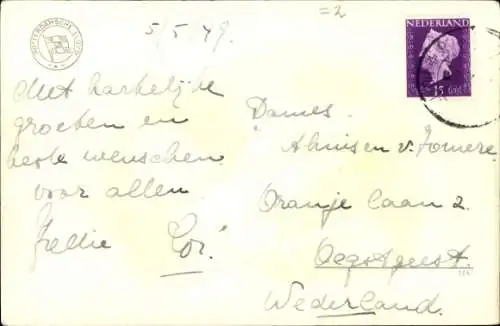 ROTTERDAMSCHE LLOYD
5/5/49.
= 2
NEDERLAND
15 cent
Met hartelijke
groeten en
beste wenschen
voor allen.
Dames.
Oranje laan 2.
Oegstgeest.
Nederland.